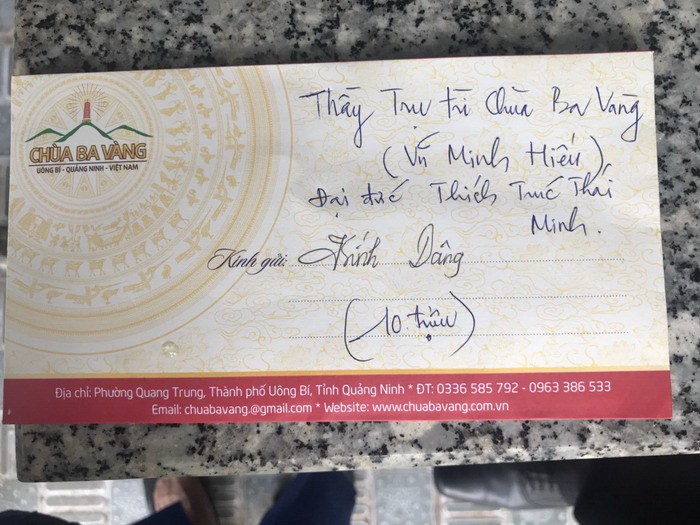 CHÙA BA VÀNG
UÔNG BÍ - QUẢNG NINH - VIỆT NAM
Thầy Trụ trì Chùa Ba Vàng
(Vũ Minh Hiếu)
Đại đức Thích Trúc Thái
Minh.
Kính gửi: Kính Dâng
(10 triệu)
Địa chỉ: Phường Quang Trung, Thành phố Uông Bí, Tỉnh Quảng Ninh * ĐT: 0336 585 792 - 0963 386 533
Email: chuabavang.@gmail.com * Website: www.chuabavang.com.vn